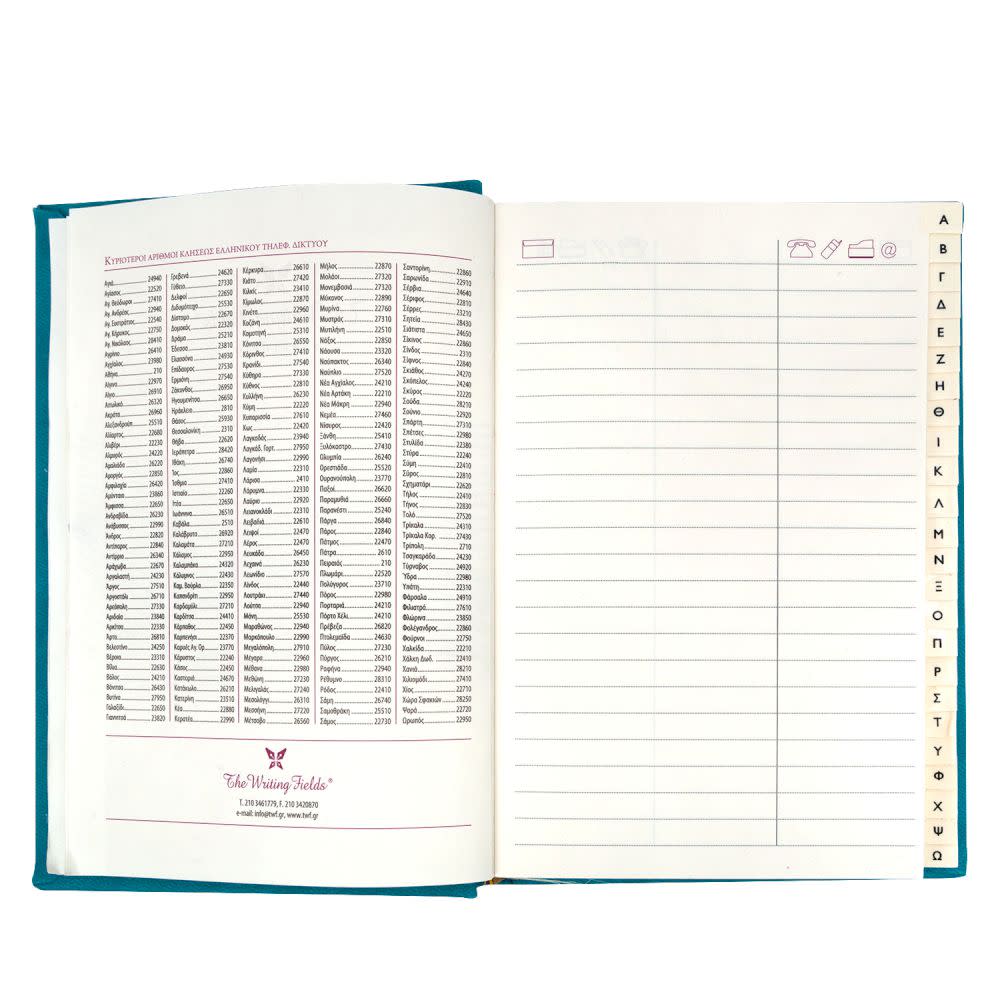 ΚΥΡΙΟΤΕΡΟΙ ΑΡΙΘΜΟΙ ΚΛΗΣΕΩΣ ΕΛΛΗΝΙΚΟΥ ΤΗΛΕΦ. ΔΙΚΤΥΟΥ
Αγιά 24940
Αγίασος 22520
Αγ. Θεόδωροι 27410
Αγ. Ανδρέας 22940
Αγ. Ευστράτιος 22540
Αγ. Κήρυκος 22750
Αγ. Νικόλαος 28410
Αγρίνιο 26410
Αγχίαλος 23980
Αθήνα 210
Αίγινα 22970
Αίγιο 26910
Αιτωλικό 26320
Ακράτα 26960
Αλεξανδρούπ 25510
Αλίαρτος 22680
Αλιβέρι 22230
Αλμυρός 24220
Αμαλιάδα 26220
Αμοργός 22850
Αμφιλοχία 26420
Αμύνταιο 23860
Άμφισσα 22650
Ανδραβίδα 26230
Ανάβυσσος 22990
Άνδρος 22820
Αντίπαρος 22840
Αντίρριο 26340
Αράχωβα 22670
Αργαλαστή 24230
Άργος 27510
Αργοστόλι 26710
Αρεόπολη 27330
Αριδαία 23840
Αρκίτσα 22330
Άρτα 26810
Βελεστίνο 24250
Βέροια 23310
Βίλια 22630
Βόλος 24210
Βόνιτσα 26430
Βυτίνα 27950
Γαλαξίδι 22650
Γιαννιτσά 23820
Γρεβενά 24620
Γύθειο 27330
Δελφοί 22650
Διδυμότειχο 25530
Δίστομο 22670
Δομοκός 22320
Δράμα 25210
Έδεσσα 23810
Ελασσόνα 24930
Επίδαυρος 27530
Ερμιόνη 27540
Ζάκυνθος 26950
Ηγουμενίτσα 26650
Ηράκλειο 2810
Θάσος 25930
Θεσσαλονίκη 2310
Θήβα 22620
Ιεράπετρα 28420
Ιθάκη 26740
Ίος 22860
Ίσθμια 27410
Ιστιαία 22260
Ιτέα 22650
Ιωάννινα 26510
Καβάλα 2510
Καλάβρυτα 26920
Καλαμάτα 27210
Κάλαμος 22950
Καλαμπάκα 24320
Κάλυμνος 22430
Καμ. Βούρλα 22350
Καπανδρίτι 22950
Καρδαμύλη 27210
Καρδίτσα 24410
Κάρπαθος 22450
Καρπενήσι 22370
Καρυές Αγ. Ορ. 23770
Κάρυστος 22240
Κάσος 22450
Καστοριά 24670
Κατάκωλο 26210
Κατερίνη 23510
Κέα 22880
Κερατέα 22990
Κέρκυρα 26610
Κιάτο 27420
Κιλκίς 23410
Κίμωλος 22870
Κινέτα 22960
Κοζάνη 24610
Κομοτηνή 25310
Κόνιτσα 26550
Κόρινθος 27410
Κρανίδι 27540
Κύθηρα 27330
Κύθνος 22810
Κυλλήνη 26230
Κύμη 22220
Κυπαρισσία 27610
Κως 22420
Λαγκαδάς 23940
Λαγκάδ. Γορτ. 27950
Λαγονήσι 22990
Λαμία 22310
Λάρισα 2410
Λάρυμνα 22330
Λαύριο 22920
Λειανοκλάδι 22310
Λειβαδιά 22610
Λειψοί 22470
Λέρος 22470
Λευκάδα 26450
Λεχαινά 26230
Λεωνίδιο 27570
Λίνδος 22440
Λουτράκι 27440
Λούτσα 22940
Μάνη 25530
Μαραθώνας 22940
Μαρκόπουλο 22990
Μεγαλόπολη 27910
Μέγαρα 22960
Μέθανα 22980
Μεθώνη 27230
Μελιγαλάς 27240
Μεσολόγγι 26310
Μεσσήνη 27220
Μέτσοβο 26560
Μήλος 22870
Μολάοι 27320
Μονεμβασιά 27320
Μύκονος 22890
Μυρίνα 22760
Μυστράς 27310
Μυτιλήνη 22510
Νάξος 22850
Νάουσα 23320
Ναύπακτος 26340
Ναύπλιο 27520
Νέα Αγχίαλος 24210
Νέα Αρτάκη 22210
Νέα Μάκρη 22940
Νεμέα 27460
Νίσυρος 22420
Ξάνθη 25410
Ξυλόκαστρο 27430
Ολυμπία 26240
Ορεστιάδα 25520
Ουρανούπολη 23770
Παξοί 26620
Παραμυθιά 26660
Παρανέστι 25240
Πάργα 26840
Πάρος 22840
Πάτμος 22470
Πάτρα 2610
Πειραιάς 210
Πλωμάρι 22520
Πολύγυρος 23710
Πόρος 22980
Πορταριά 24210
Πόρτο Χέλι 24210
Πρέβεζα 26820
Πτολεμαΐδα 24630
Πύλος 27230
Πύργος 26210
Ραφήνα 22940
Ρέθυμνο 28310
Ρόδος 22410
Σάμη 26740
Σαμοθράκη 25510
Σάμος 22730
Σαντορίνη 22860
Σαρωνίδα 22910
Σέρβια 24640
Σέριφος 22810
Σέρρες 23210
Σητεία 28430
Σιάτιστα 24650
Σίκινος 22860
Σίνδος 2310
Σίφνος 22840
Σκιάθος 24270
Σκόπελος 24240
Σκύρος 22220
Σούδα 28210
Σούνιο 22920
Σπάρτη 27310
Σπέτσες 22980
Στυλίδα 22380
Στύρα 22240
Σύμη 22410
Σύρος 22810
Σχηματάρι 22620
Τήλος 22410
Τήνος 22830
Τολό 27520
Τρίκαλα 24310
Τρίκαλα Κορ. 27430
Τρίπολη 2710
Τσαγκαράδα 24230
Τύρναβος 24920
Ύδρα 22980
Υπάτη 22310
Φάρσαλα 24910
Φιλιατρά 27610
Φλώρινα 23850
Φολέγανδρος 22860
Φούρνοι 22750
Χαλκίδα 22210
Χάλκη Δωδ. 22410
Χανιά 28210
Χιλιομόδι 27410
Χίος 22710
Χώρα Σφακιών 28250
Ψαρά 22720
Ωρωπός 22950
The Writing Fields®
T. 210 3461779, F. 210 3420870
e-mail: info@twf.gr, www.twf.gr
@
Α
Β
Γ
Δ
Ε
Ζ
Η
Θ
Ι
Κ
Λ
Μ
Ν
Ξ
Ο
Π
Ρ
Σ
Τ
Υ
Φ
Χ
Ψ
Ω